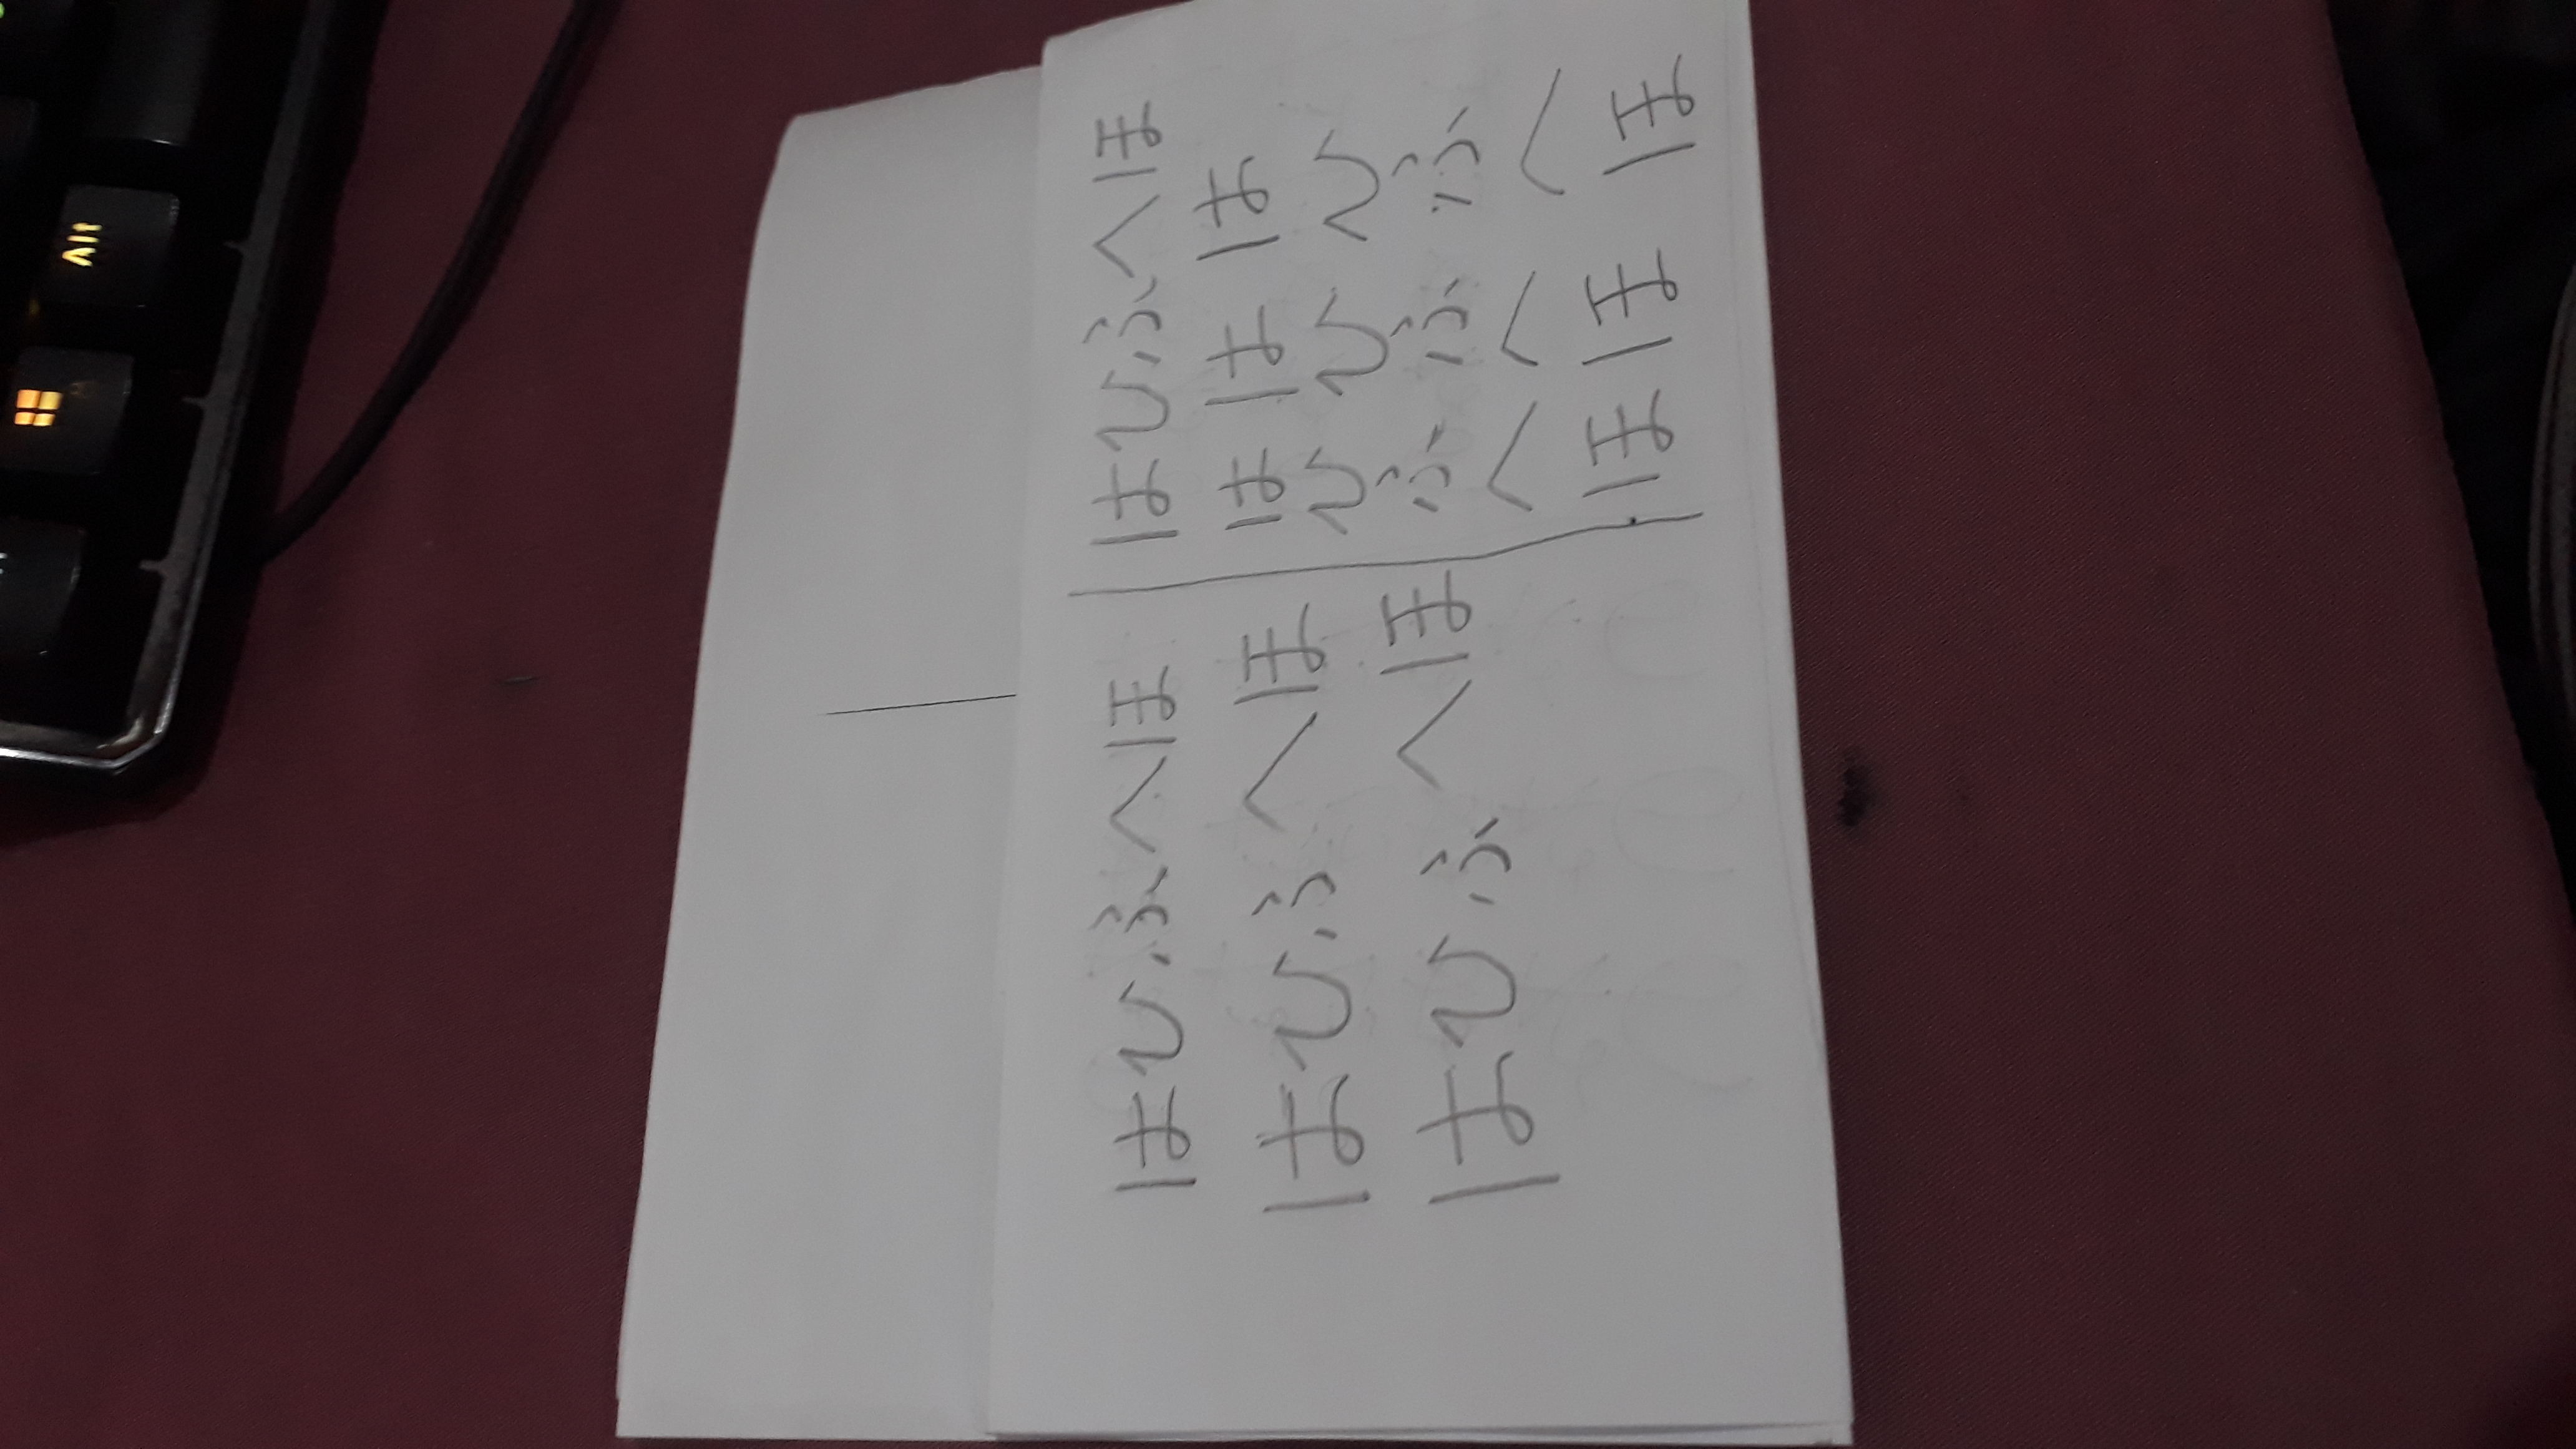 Alt
はひふへほ
はひふへほ
はひふへほ
はひふへほ
は は は
ひ ひ ひ
ふ ふ ふ
へ へ へ
ほ ほ ほ